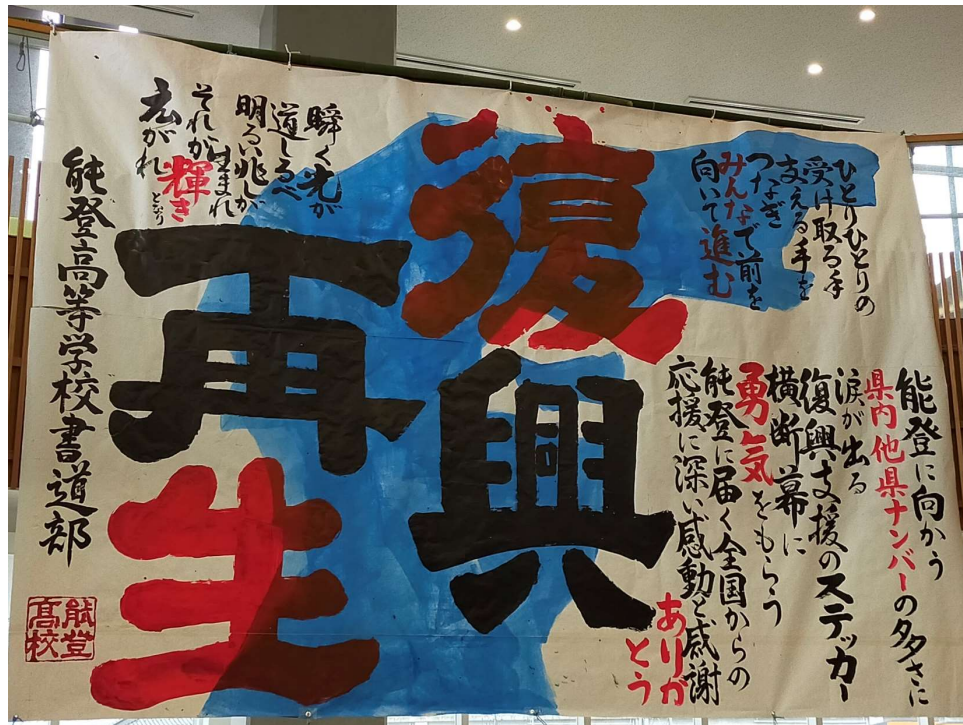 ひとりひとりの
受け取る手
支える手を
つなぎ
みんなで前を
向いて進む
能登に向かう
県内他県ナンバーの多さに
涙が出る
復興支援のステッカー
横断幕に
勇気をもらう
能登に届く全国からの
応援に深い感動と感謝
ありが
とう
復興
再生
瞬く光が
道しるべ
明るい兆しが
生まれ
それが輝き
となり
広がれ
能登高等学校書道部
能登
髙校